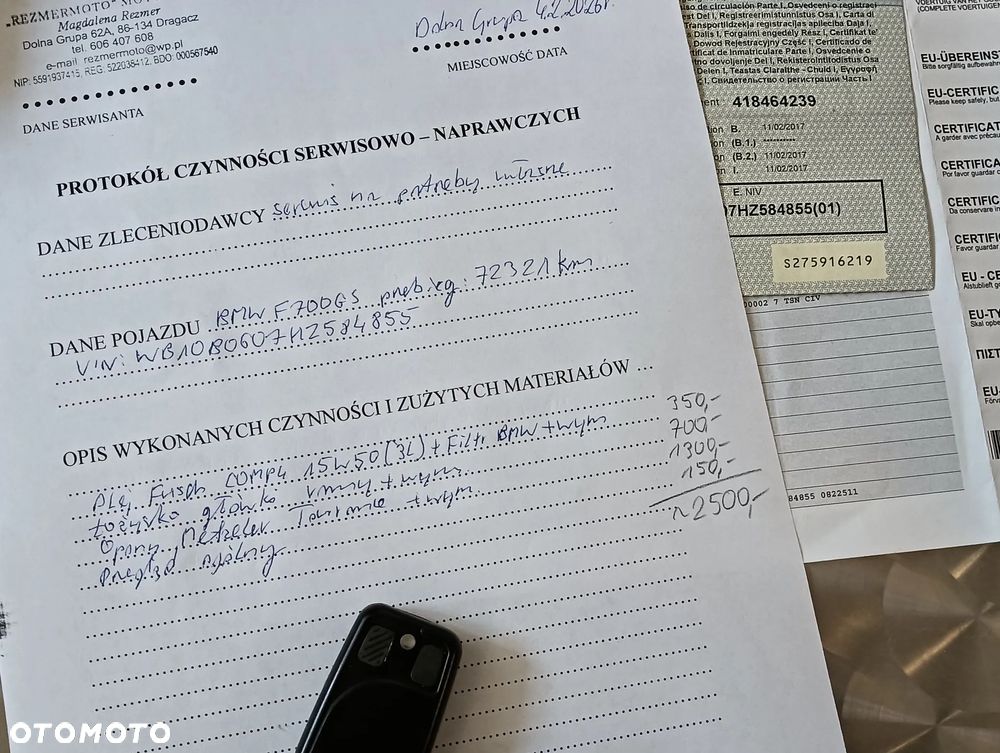 „REZMERMOTO"
Magdalena Rezmer
Dolna Grupa 62A, 86-134 Dragacz
tel. 606 407 608
e-mail rezmermoto@wp.pl
NIP: 5591937415, REG. 522038412, BDO: 000567540
DANE SERWISANTA
Dolna Grupa 4.2.2026r.
MIEJSCOWOŚĆ DATA
PROTOKÓŁ CZYNNOŚCI SERWISOWO – NAPRAWCZYCH
DANE ZLECENIODAWCY serwis na potrzeby własne
DANE POJAZDU BMW F700GS przebieg: 72321km
VIN: WB10B0607HZ584855
OPIS WYKONANYCH CZYNNOŚCI I ZUŻYTYCH MATERIAŁÓW ...
Olej Fusch COMP4 15W50 (3L) + Filtr BMW + wym 350,-
Łożysko główki ramy + wym 700,-
Opony Metzeler Tourance + wym 1300,-
Przegląd ogólny 150,-
~2500,-
so de circulación Parte I, Osvědčení o registraci
est Del I, Registreerimistunnistus Osa I, Carta di
Transportlīdzekļa reģistrācijas apliecība Daļa I,
Dalis I, Forgalmi engedély Rész I, Ċertifikat ta'
Dowód Rejestracyjny Część I, Certificado de
tificat de înmatriculare Partea I, Osvedčenie o
no dovoljenje Del I, Rekisteröintitodistus Osa
Delen I, Teastas Cláraithe - Chuid I, Εγγραφή
Свидетелство о регистрации Часть I
418464239
B. 11/02/2017
(B.1.) ----------
(B.2.) 11/02/2017
I. 11/02/2017
E. NIV
7HZ584855(01)
S275916219
00002 7 TSN CIV
84855 0822511
VOERTUIG VAN HET
(COMPLETE VOERTUIGEN
EU-ÜBEREINST
Bitte sorgfältig aufbewahren
EU-CERTIFIC
Please keep safely, but
CERTIFICAT
A garder avec précau
CERTIFICA
Por favor guardar c
CERTIFIC
Da conservare in
CERTIFIC
Favor guardar
EU - CE
Alstublieft g
EU-TY
Skal opbe
ΠΙΣΤ
EU-
Förv
OTOMOTO